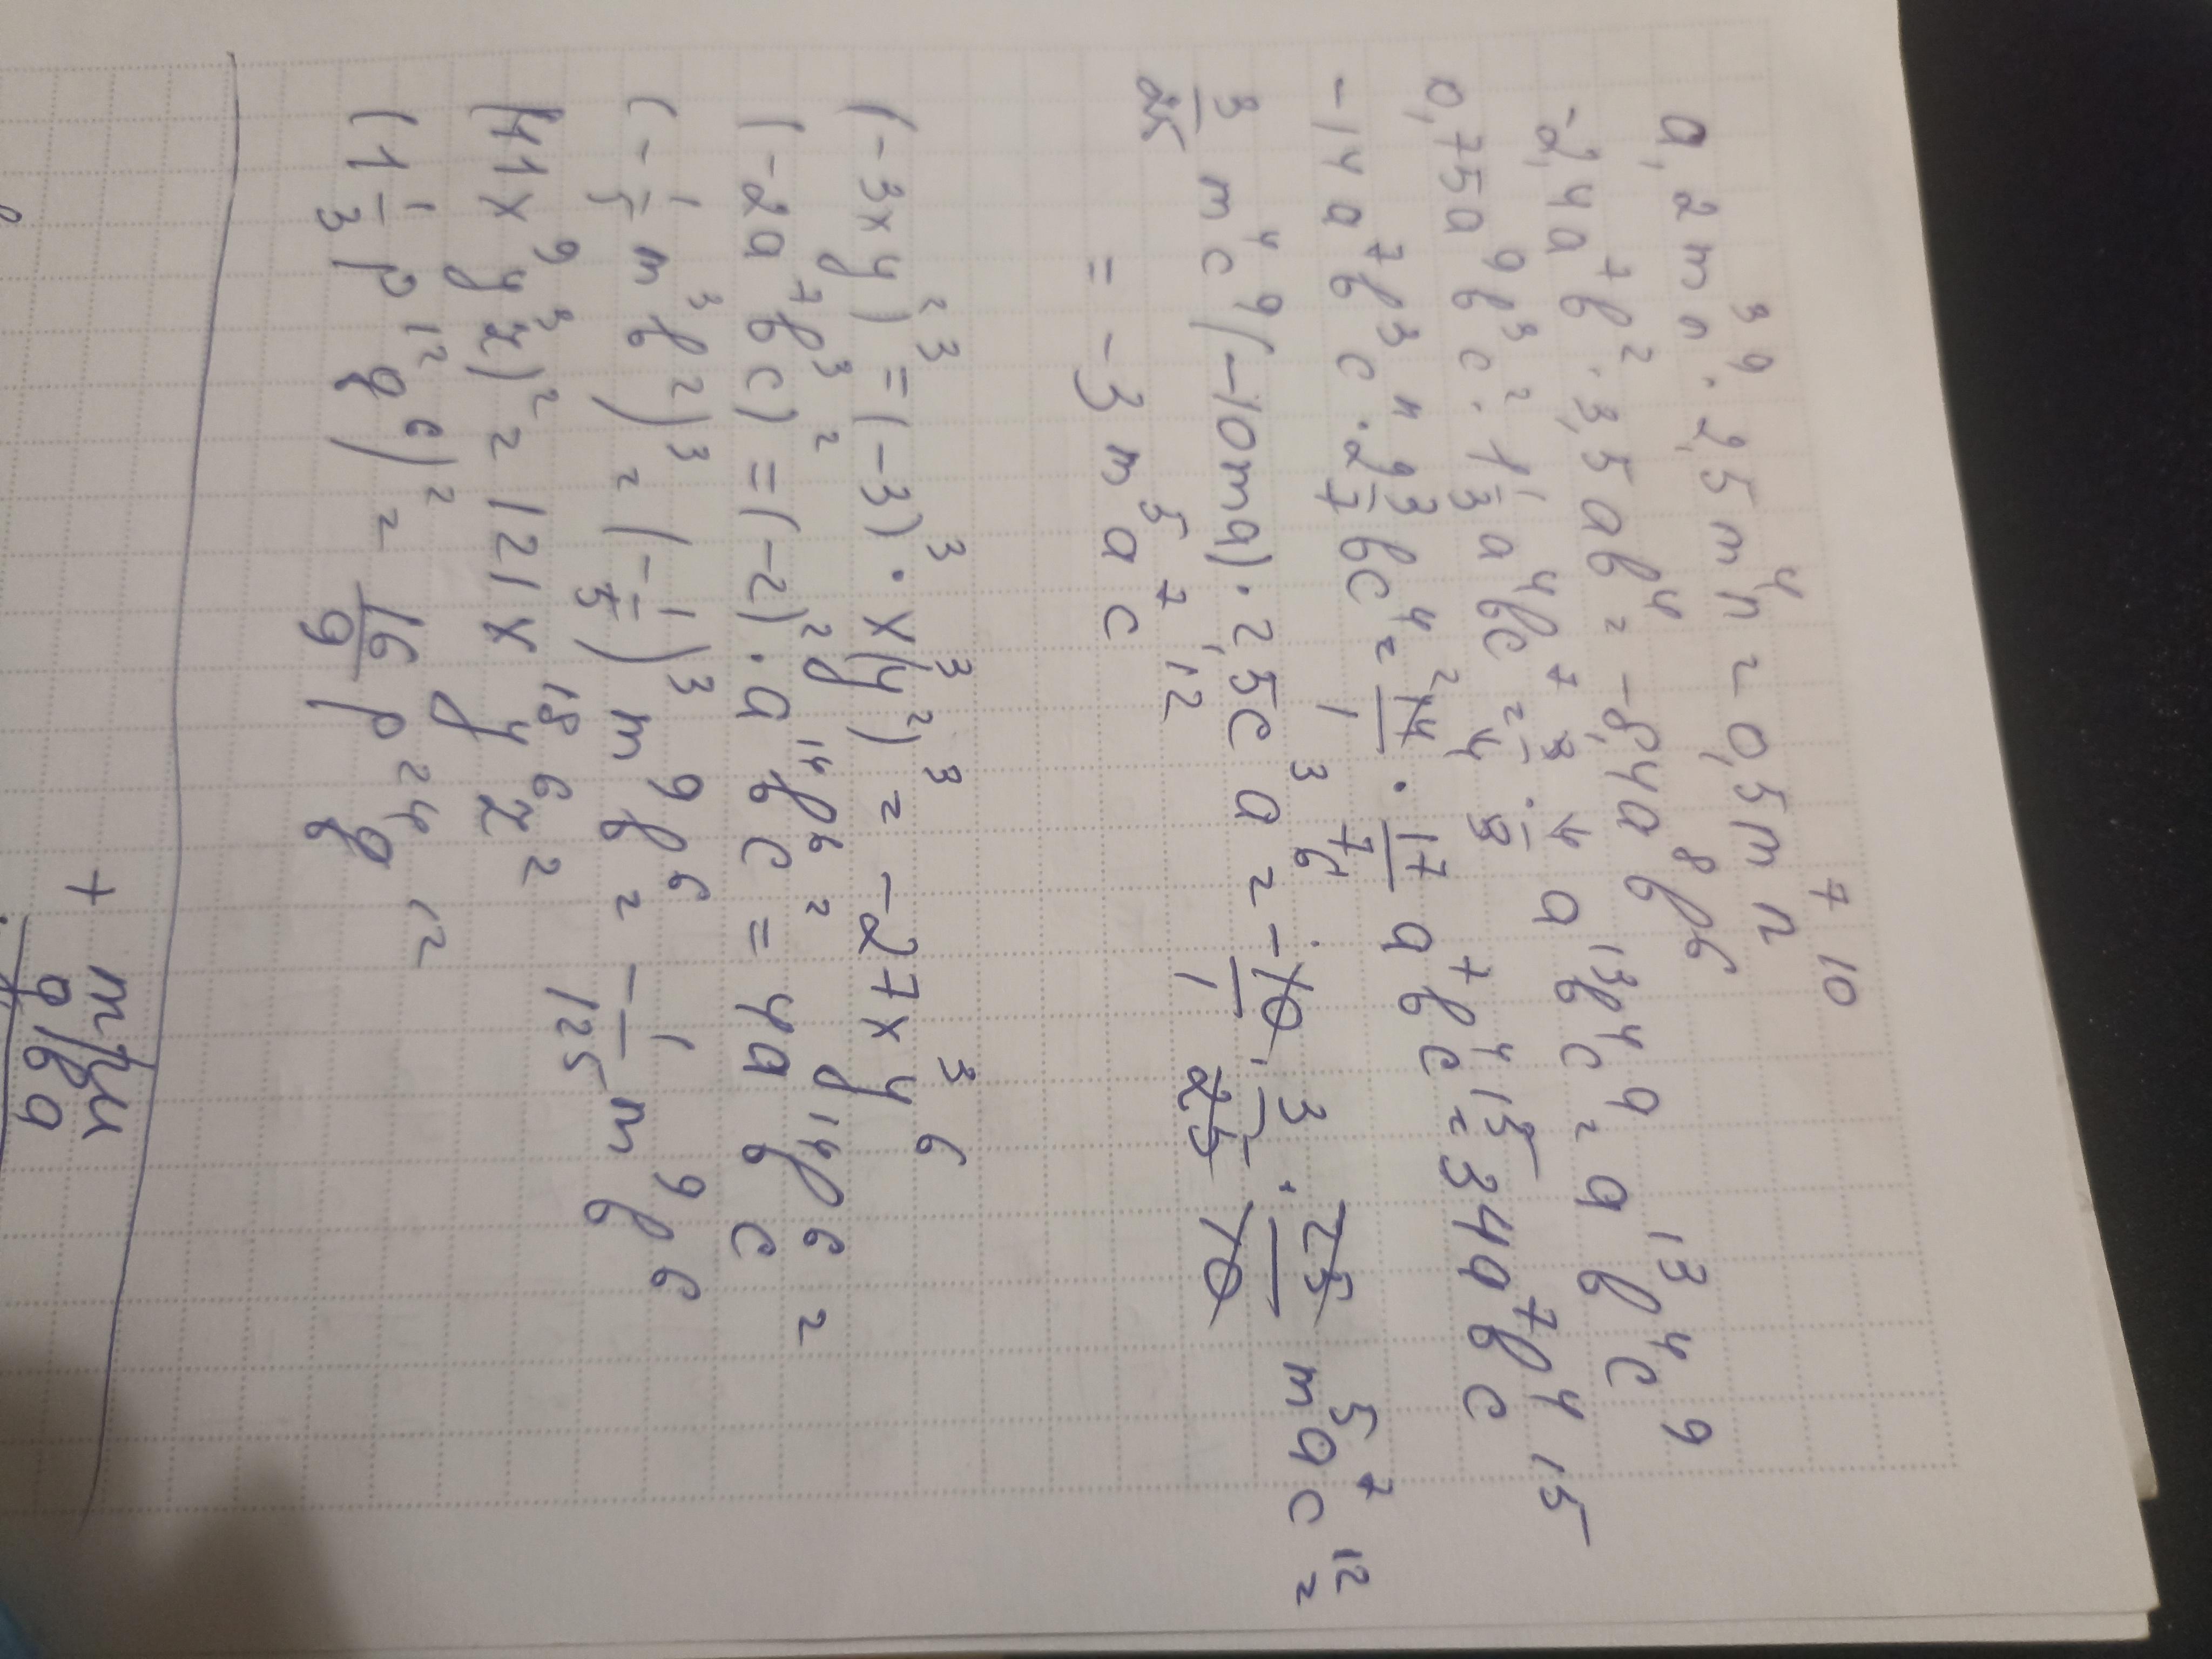 0,2 m³n⁹ · 2,5 m⁴n = 0,5 m⁷n¹⁰
-2,4a⁷b² · 3,5ab⁴ = -8,4a⁸b⁶
0,75a⁹b³c² · 1 1/3 a⁴bc⁷ = 3/4 · 4/3 a¹³b⁴c⁹ = a¹³b⁴c⁹
-14a⁷b³c¹¹ · 2 3/7 bc⁴ = ²14/1 · 17/7 a⁷b⁴c¹⁵ = 34a⁷b⁴c¹⁵
3/25 m⁴c⁹(-10ma) · 2,5c³a⁶ = -10/1 · 3/25 · 25/10 m⁵a⁷c¹² =
= -3m⁵a⁷c¹²
(-3xy²)³ = (-3)³ · x³(y²)³ = -27x³y⁶
(-2a⁷b³c)² = (-2)² · a¹⁴b⁶c² = 4a¹⁴b⁶c²
(-1/5 m³b²)³ = (-1/5)³ m⁹b⁶ = -1/125 m⁹b⁶
(11x⁹y³z)² = 121x¹⁸y⁶z²
(1 1/3 p¹²q⁶)² = 16/9 p²⁴q¹²